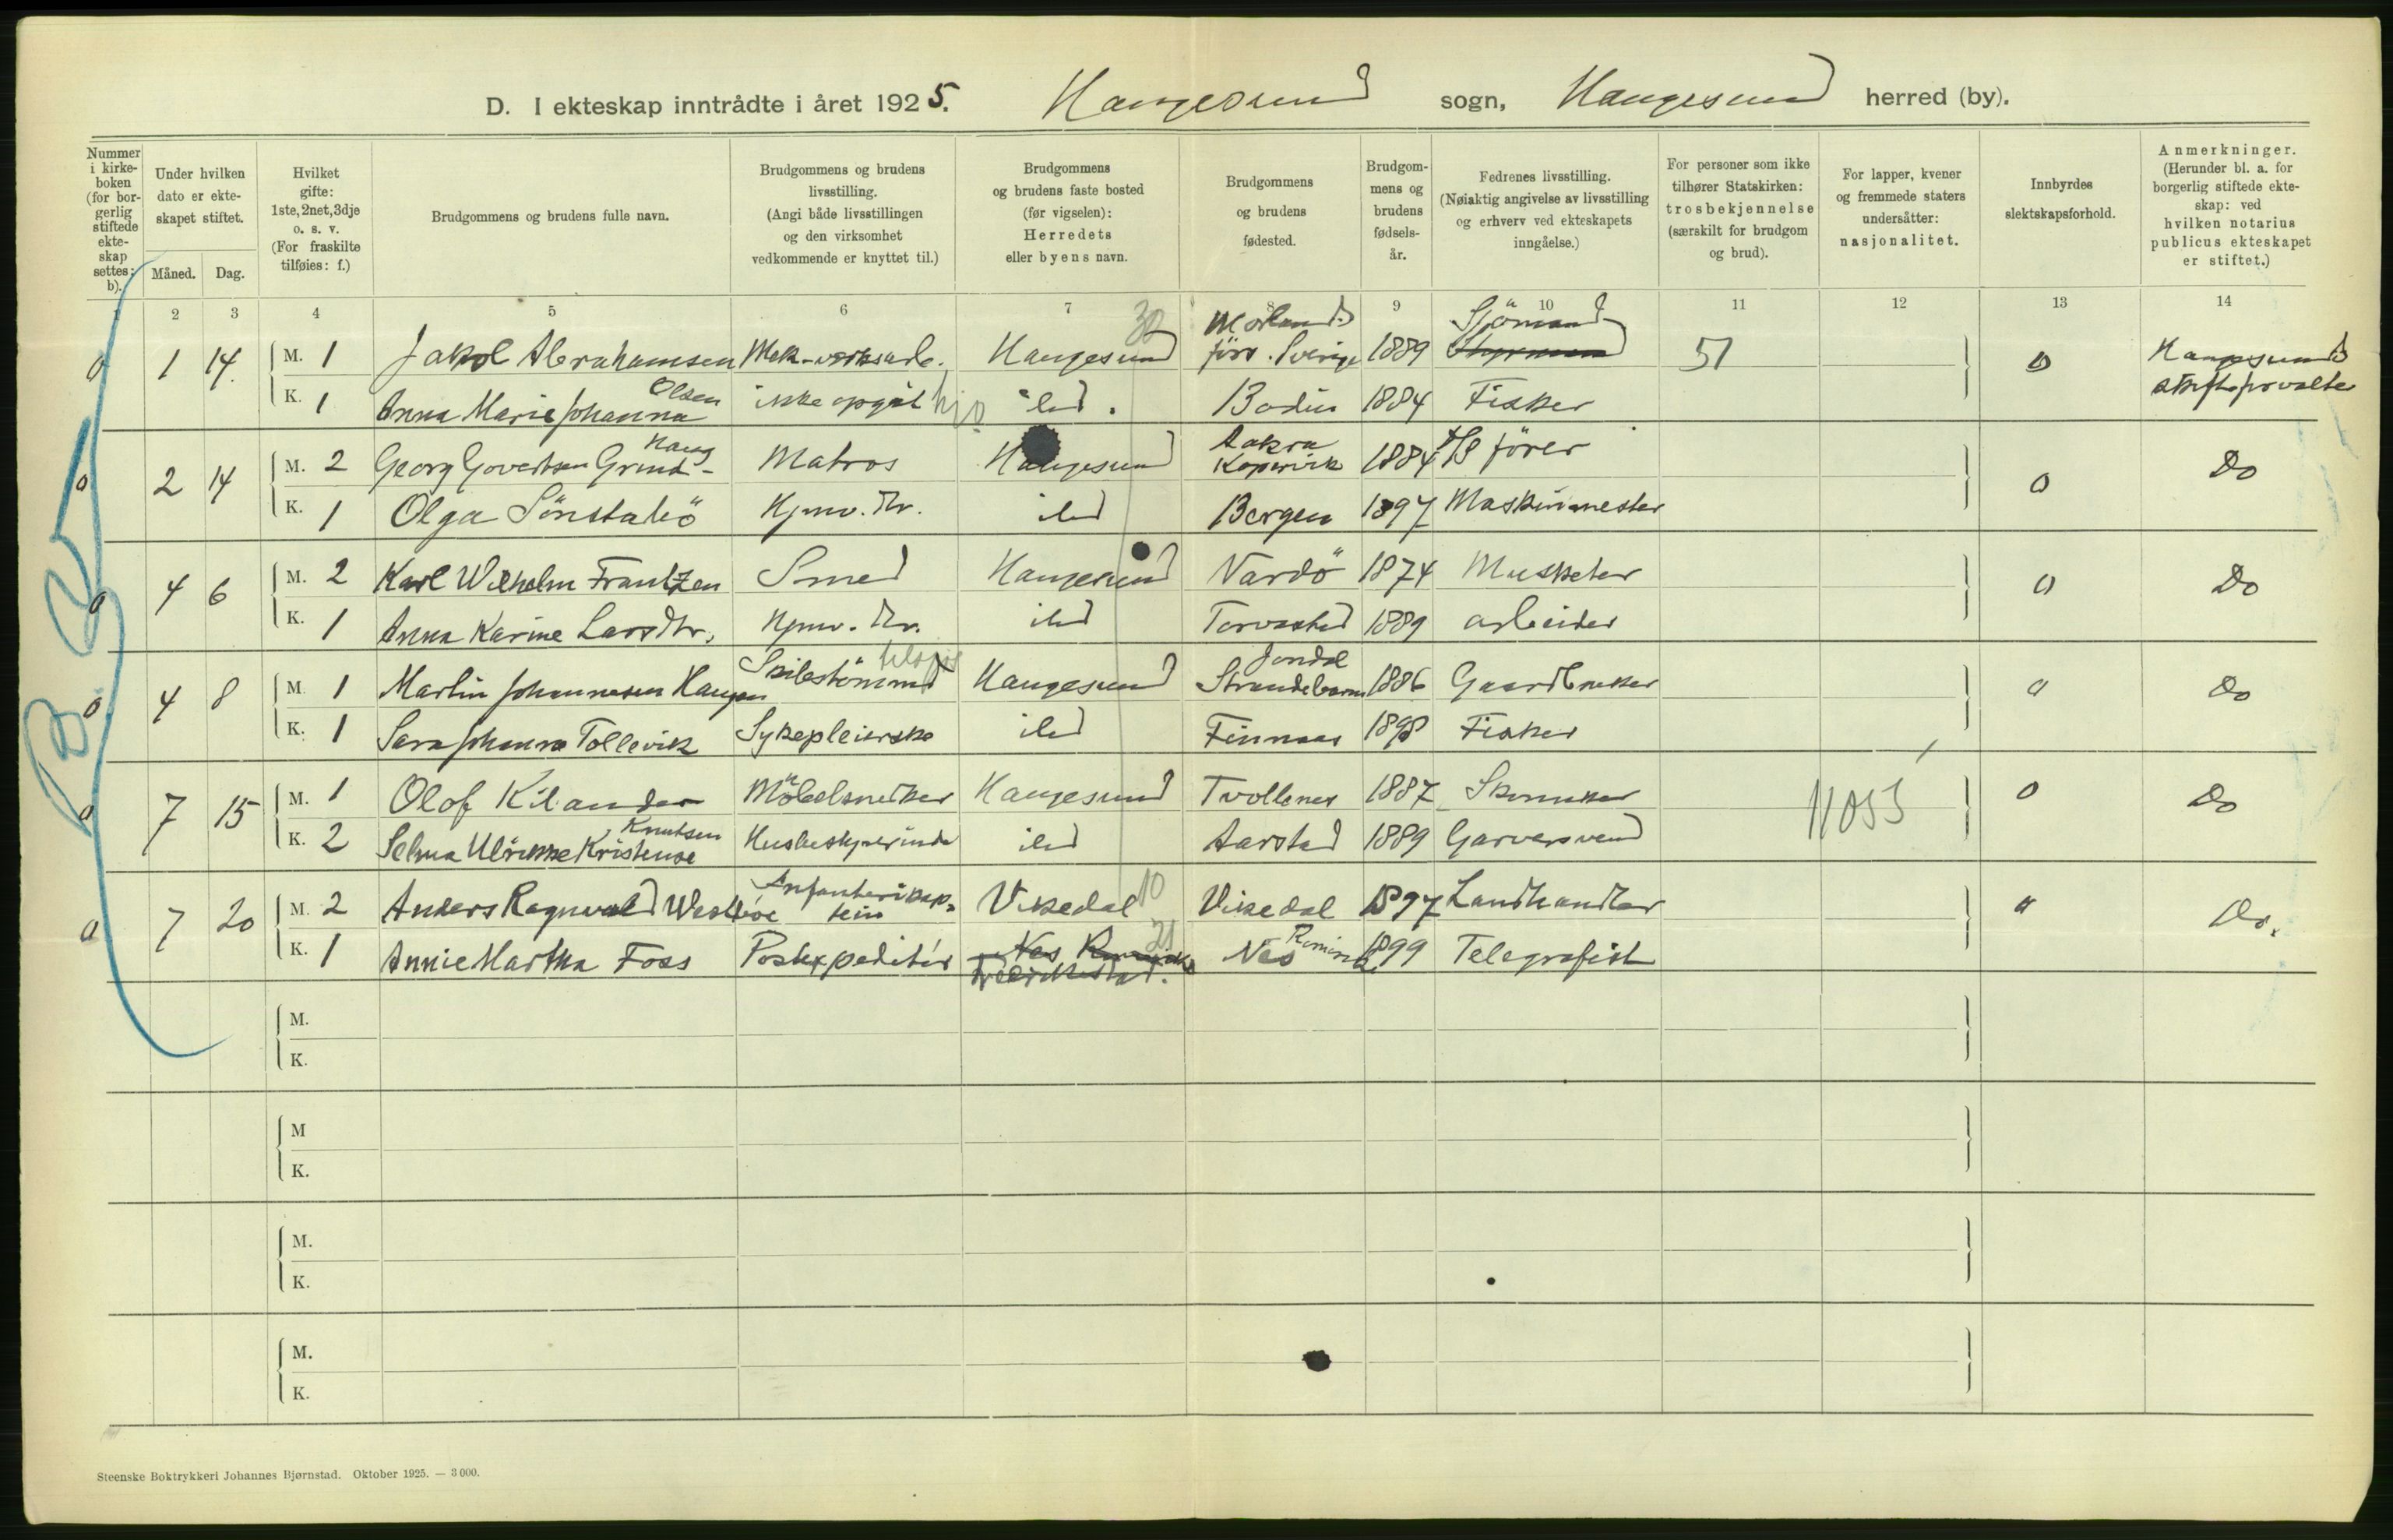 D. I ekteskap inntrådte i året 1925. Haugesund sogn, Haugesund herred (by).
Nummer i kirke-boken (for bor-gerlig stiftede ekte-skap settes: b).
Under hvilken dato er ekte-skapet stiftet.
Måned. Dag.
Hvilket gifte: 1ste, 2net, 3dje o. s. v. (For fraskilte tilføies: f.)
Brudgommens og brudens fulle navn.
Brudgommens og brudens livsstilling. (Angi både livsstillingen og den virksomhet vedkommende er knyttet til.)
Brudgommens og brudens faste bosted (før vigselen): Herredets eller byens navn.
Brudgommens og brudens fødested.
Brudgom-mens og brudens fødsels-år.
Fedrenes livsstilling. (Nøiaktig angivelse av livsstilling og erhverv ved ekteskapets inngåelse.)
For personer som ikke tilhører Statskirken: trosbekjennelse (særskilt for brudgom og brud).
For lapper, kvener og fremmede staters undersåtter: nasjonalitet.
Innbyrdes slektskapsforhold.
Anmerkninger. (Herunder bl. a. for borgerlig stiftede ekte-skap: ved hvilken notarius publicus ekteskapet er stiftet.)
1 2 3 4 5 6 7 8 9 10 11 12 13 14
0 1 14. M. 1 Jakob Abrahamsen Mek-verksarb. Haugesund 30 Morland förs. Sverige 1889 Sjömand Styrmann 51 0 Haugesunds skifteforvalte
K. 1 Anna Marie Johanna Olsen ikke opgit hjo ibd. Bodin 1884 Fisker
0 2 14 M. 2 Georg Govertsen Grind-Haug Matros Haugesund Aakra Kopervik 1884 förer 0 Do
K. 1 Olga Sönstabö Hjmv. dtr. ibd Bergen 1897 Maskinmester
0 4 6 M. 2 Karl Wilhelm Frantzen Smed Haugesund Vardö 1874 Musketer 0 Do
K. 1 Anna Karine Larsdtr. Hjmv. dtr. ibd Torvastad 1889 arbeider
0 4 8 M. 1 Martin Johannesen Haugen Skibstömmerm Haugesund Jondal Strandebarm 1886 Gaardbruker 0 Do
K. 1 Sara Johanna Tollevik Sykepleierske ibd Finnaas 1898 Fisker
0 7 15 M. 1 Olof Kilander Möbelsnekker Haugesund 1887 Skomaker 11055 0 Do
K. 2 Selma Ulrikke Kristense Knutsen Husbestyrerinde ibd Aarstad 1889 Garversvend
0 7 20 M. 2 Anders Ragnvald Westbøe Infanterikap-tein Vikedal 10 Vikedal 1897 Landhandler 0 Do.
K. 1 Annie Martha Foss Postexpeditör Nes Romerike Fredrikstad. 21 Nes Romerike 1899 Telegrafist
M.
K.
M
K.
M.
K.
M.
K.
Steenske Boktrykkeri Johannes Bjørnstad. Oktober 1925. — 3 000.